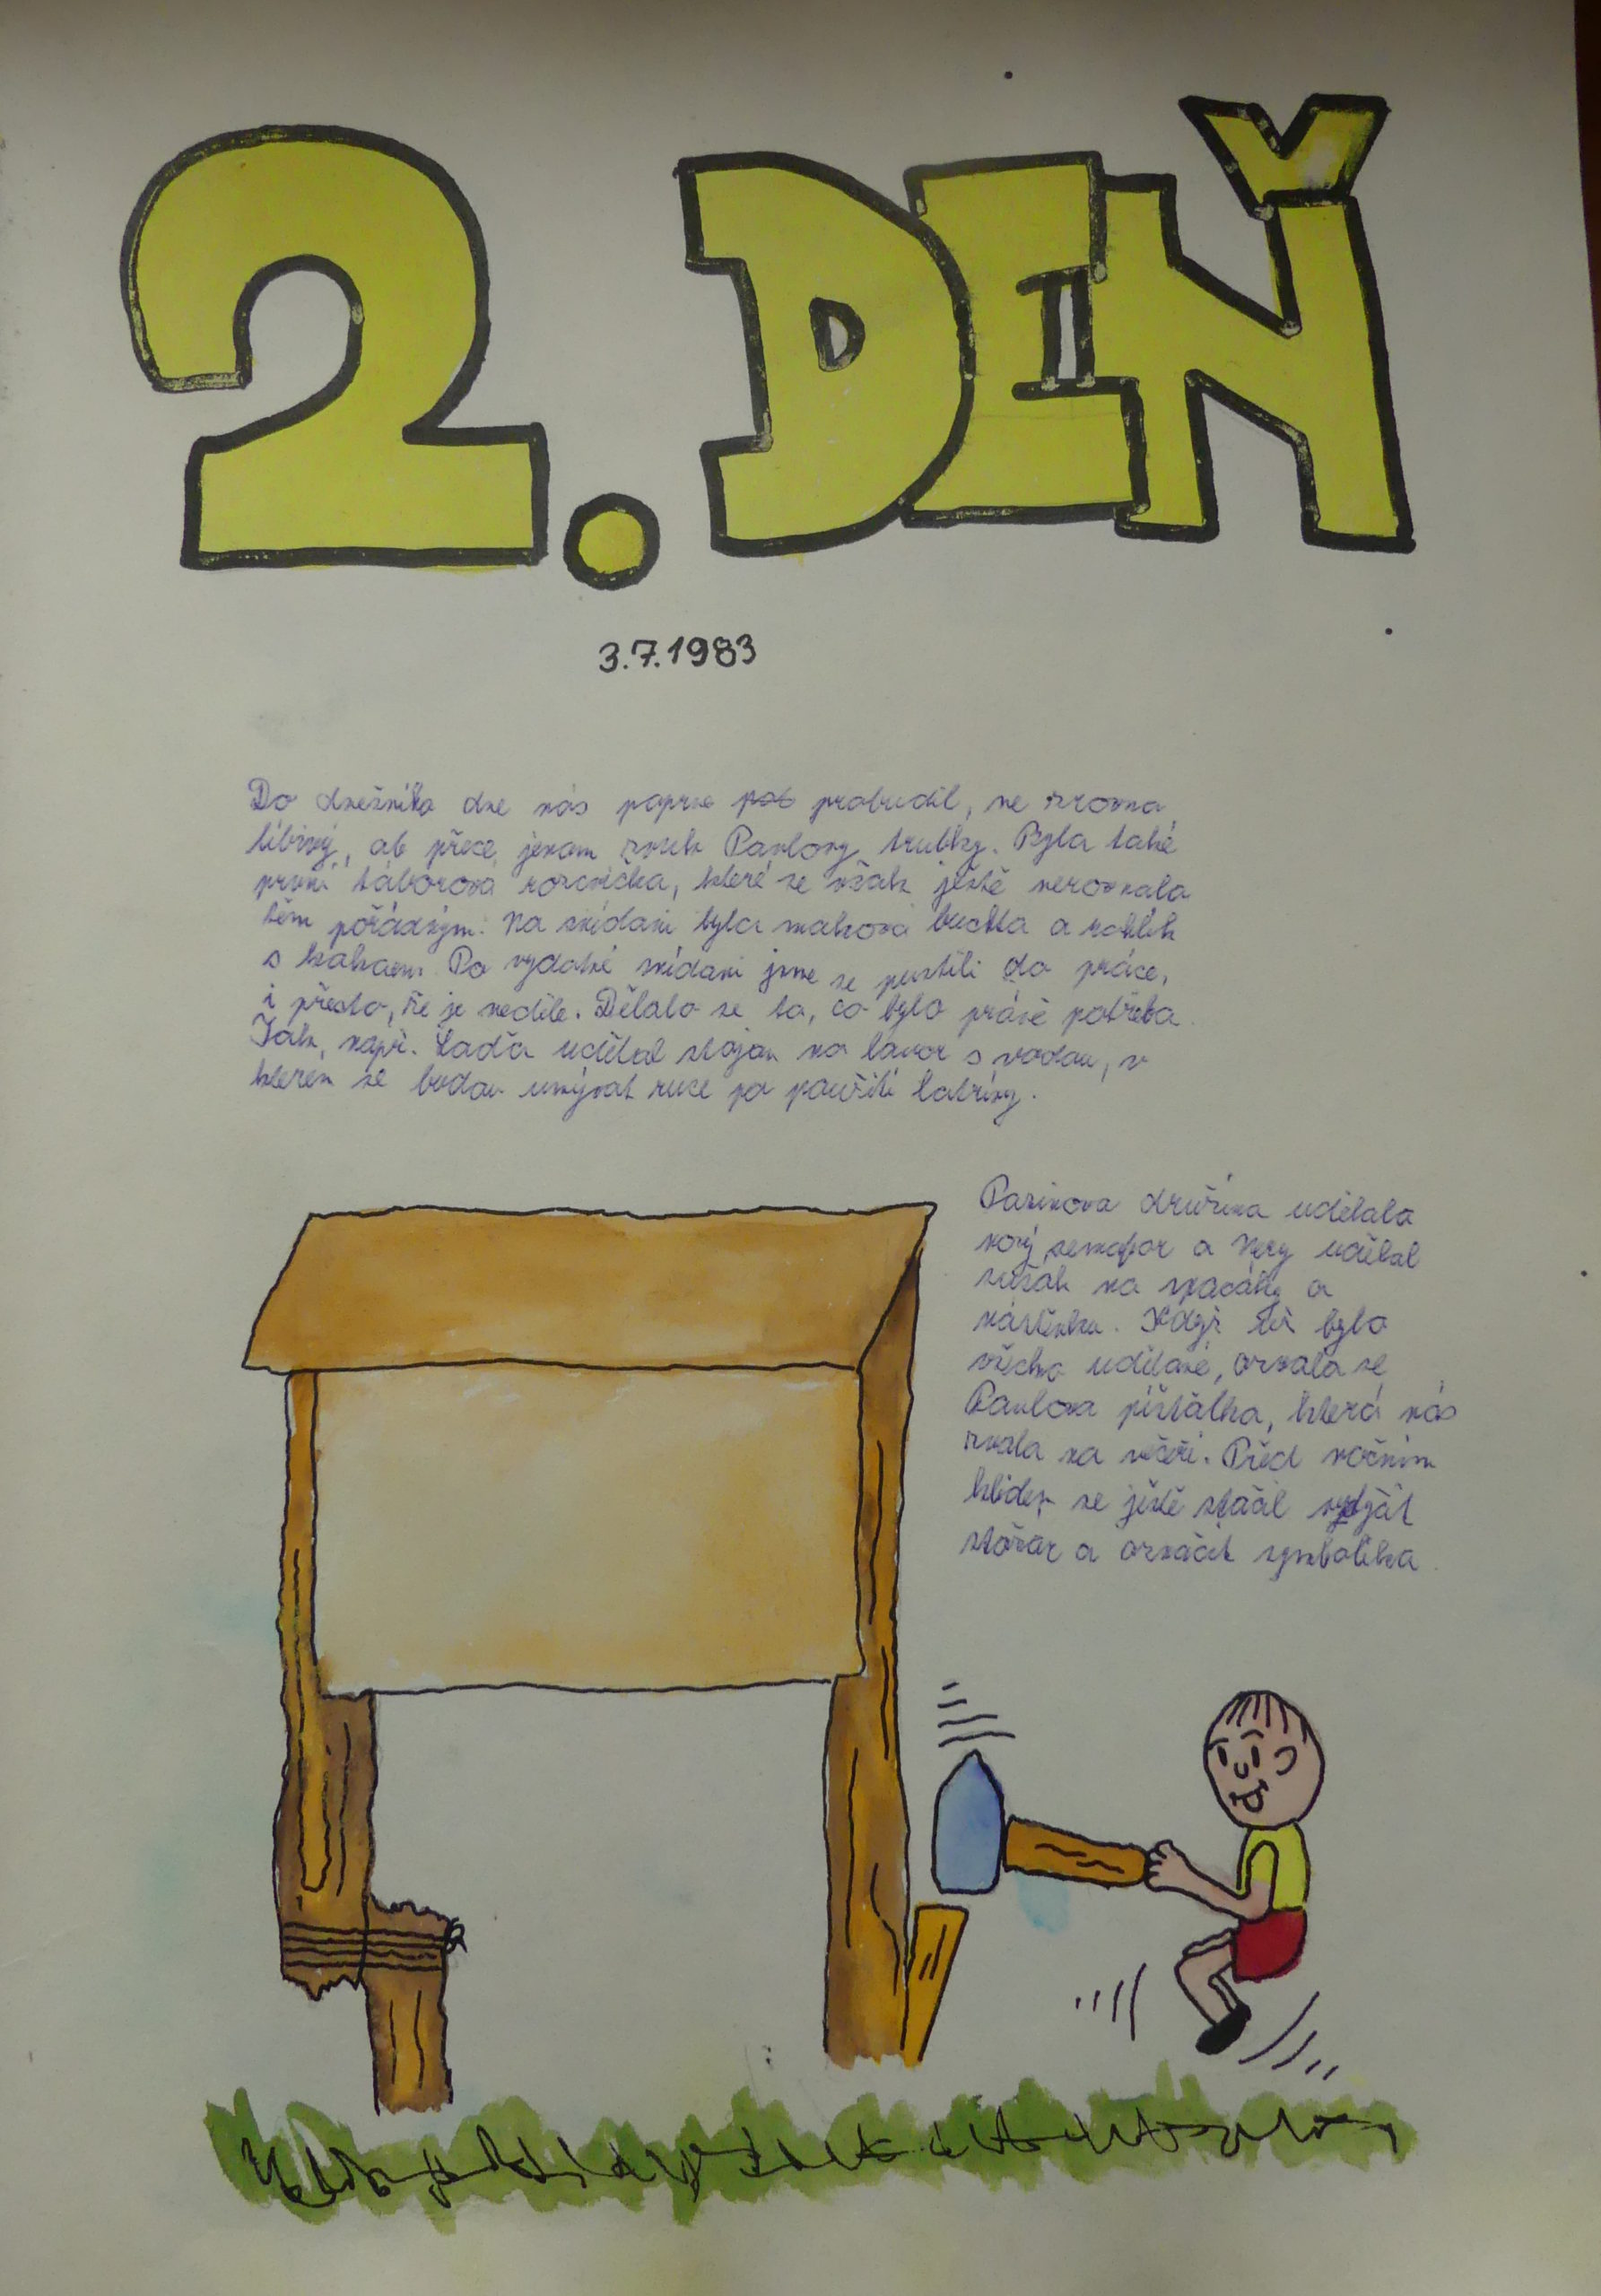 2. DEŇ
3.7.1983
Do dnešního dne nás poprvé probudil, ne zrovna
líbivý, ale přece jenom zvuk Pavlovy trubky. Byla také
první táborová rozcvička, které se však ještě nerovnala
těm pořádným. Na snídani byla makova buchta a rohlík
s kakaem. Po vydatné snídani jsme se pustili do práce,
i přesto, že je neděle. Dělalo se to, co bylo právě potřeba.
Tak, např. Laďa udělal stojan na lavor s vodou, v
kterém se budou umývat ruce po použití latríny.
družina udělala
nový semafor a udělal
sušák na spacáky a
nástěnku. Když již bylo
všechno udělané, ozvala se
Pavlova píšťalka, která nás
zvala na večeři. Před nočním
klidem se ještě stačil
stožár a označit symbolika